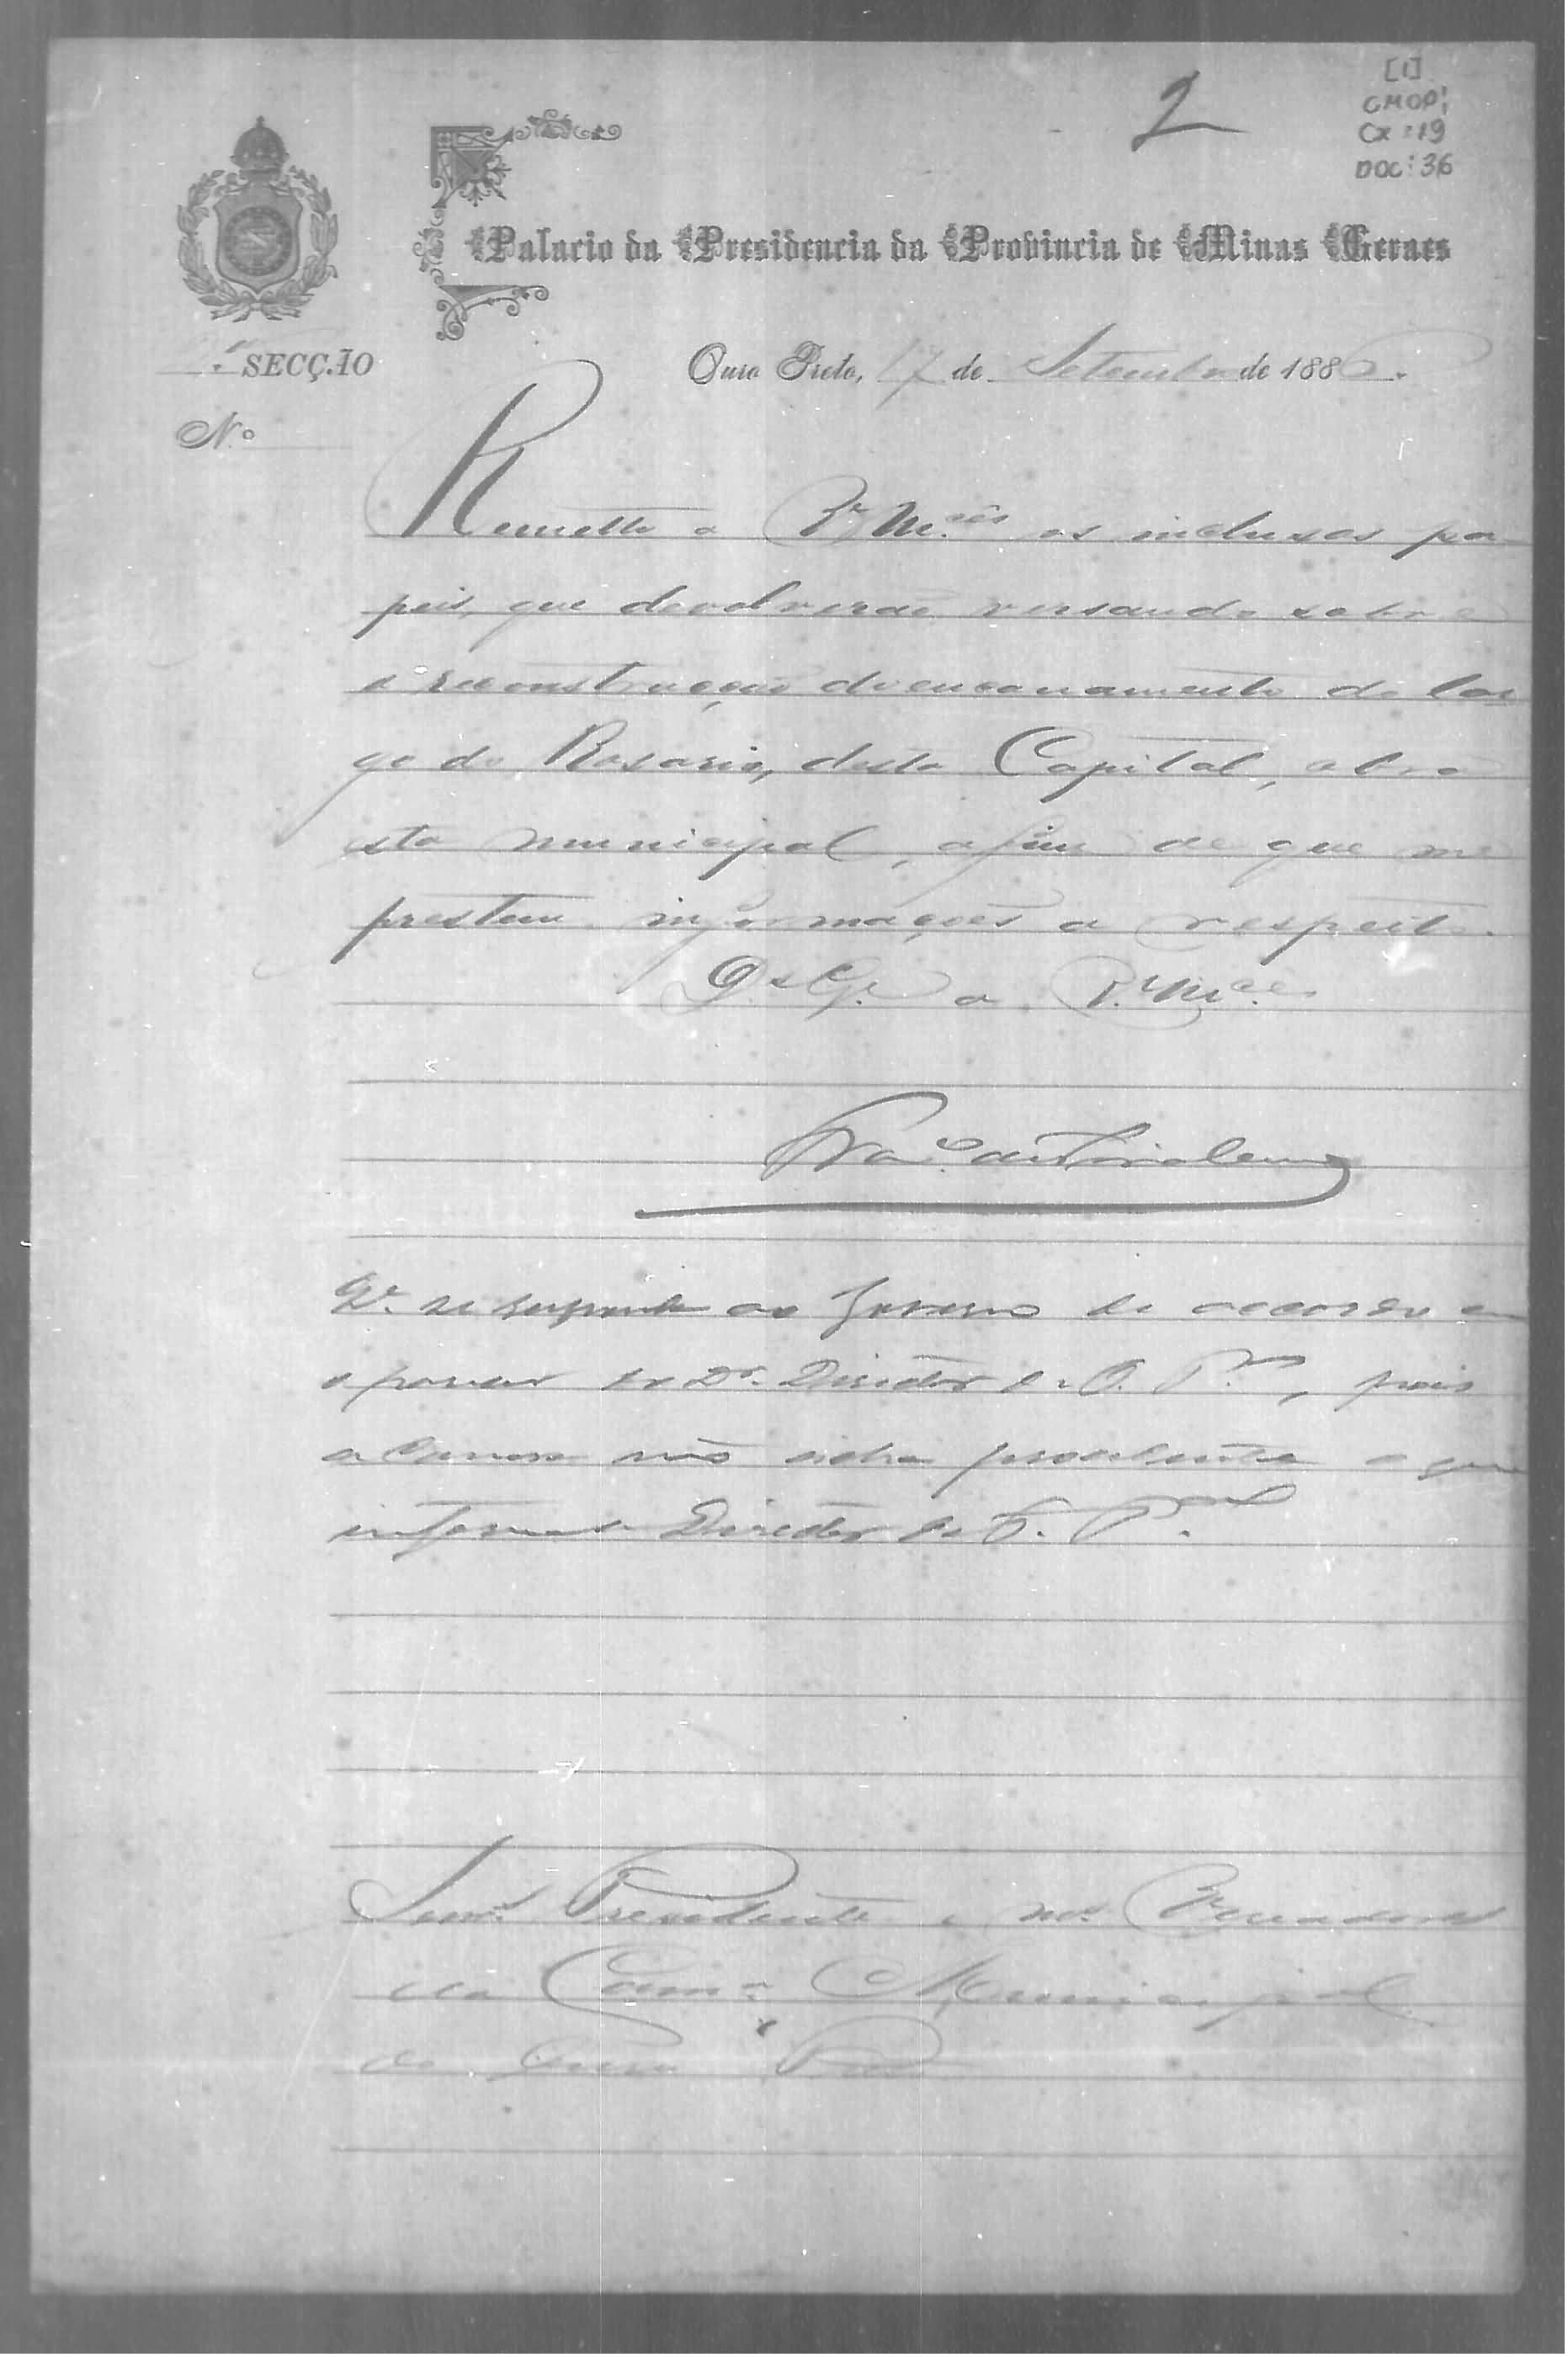 2
[1]
CMOP
Cx: 19
DOC: 36
Palacio da Presidencia da Provincia de Minas Geraes
SECÇÃO
Ouro Preto, 17 de Setembro de 1886.
N.º
Remetto a V.Mcês os inclusos pa
peis, que devolverão, versando sobre
a reconstrucção do encanamento do lar
go do Rosario, desta Capital, obra
esta municipal, afim de que me
prestem informações a respeito.
Ds. Ge. a V.Mces.
Q. se responda ao Governo de accordo
o parecer do Dr. Director de O. P., pois
a Camara não acha procedente o que
informa Director da F. P.al
Snrs. Presidente e mais Vereadores
da Camª Municipal
de Ouro Preto